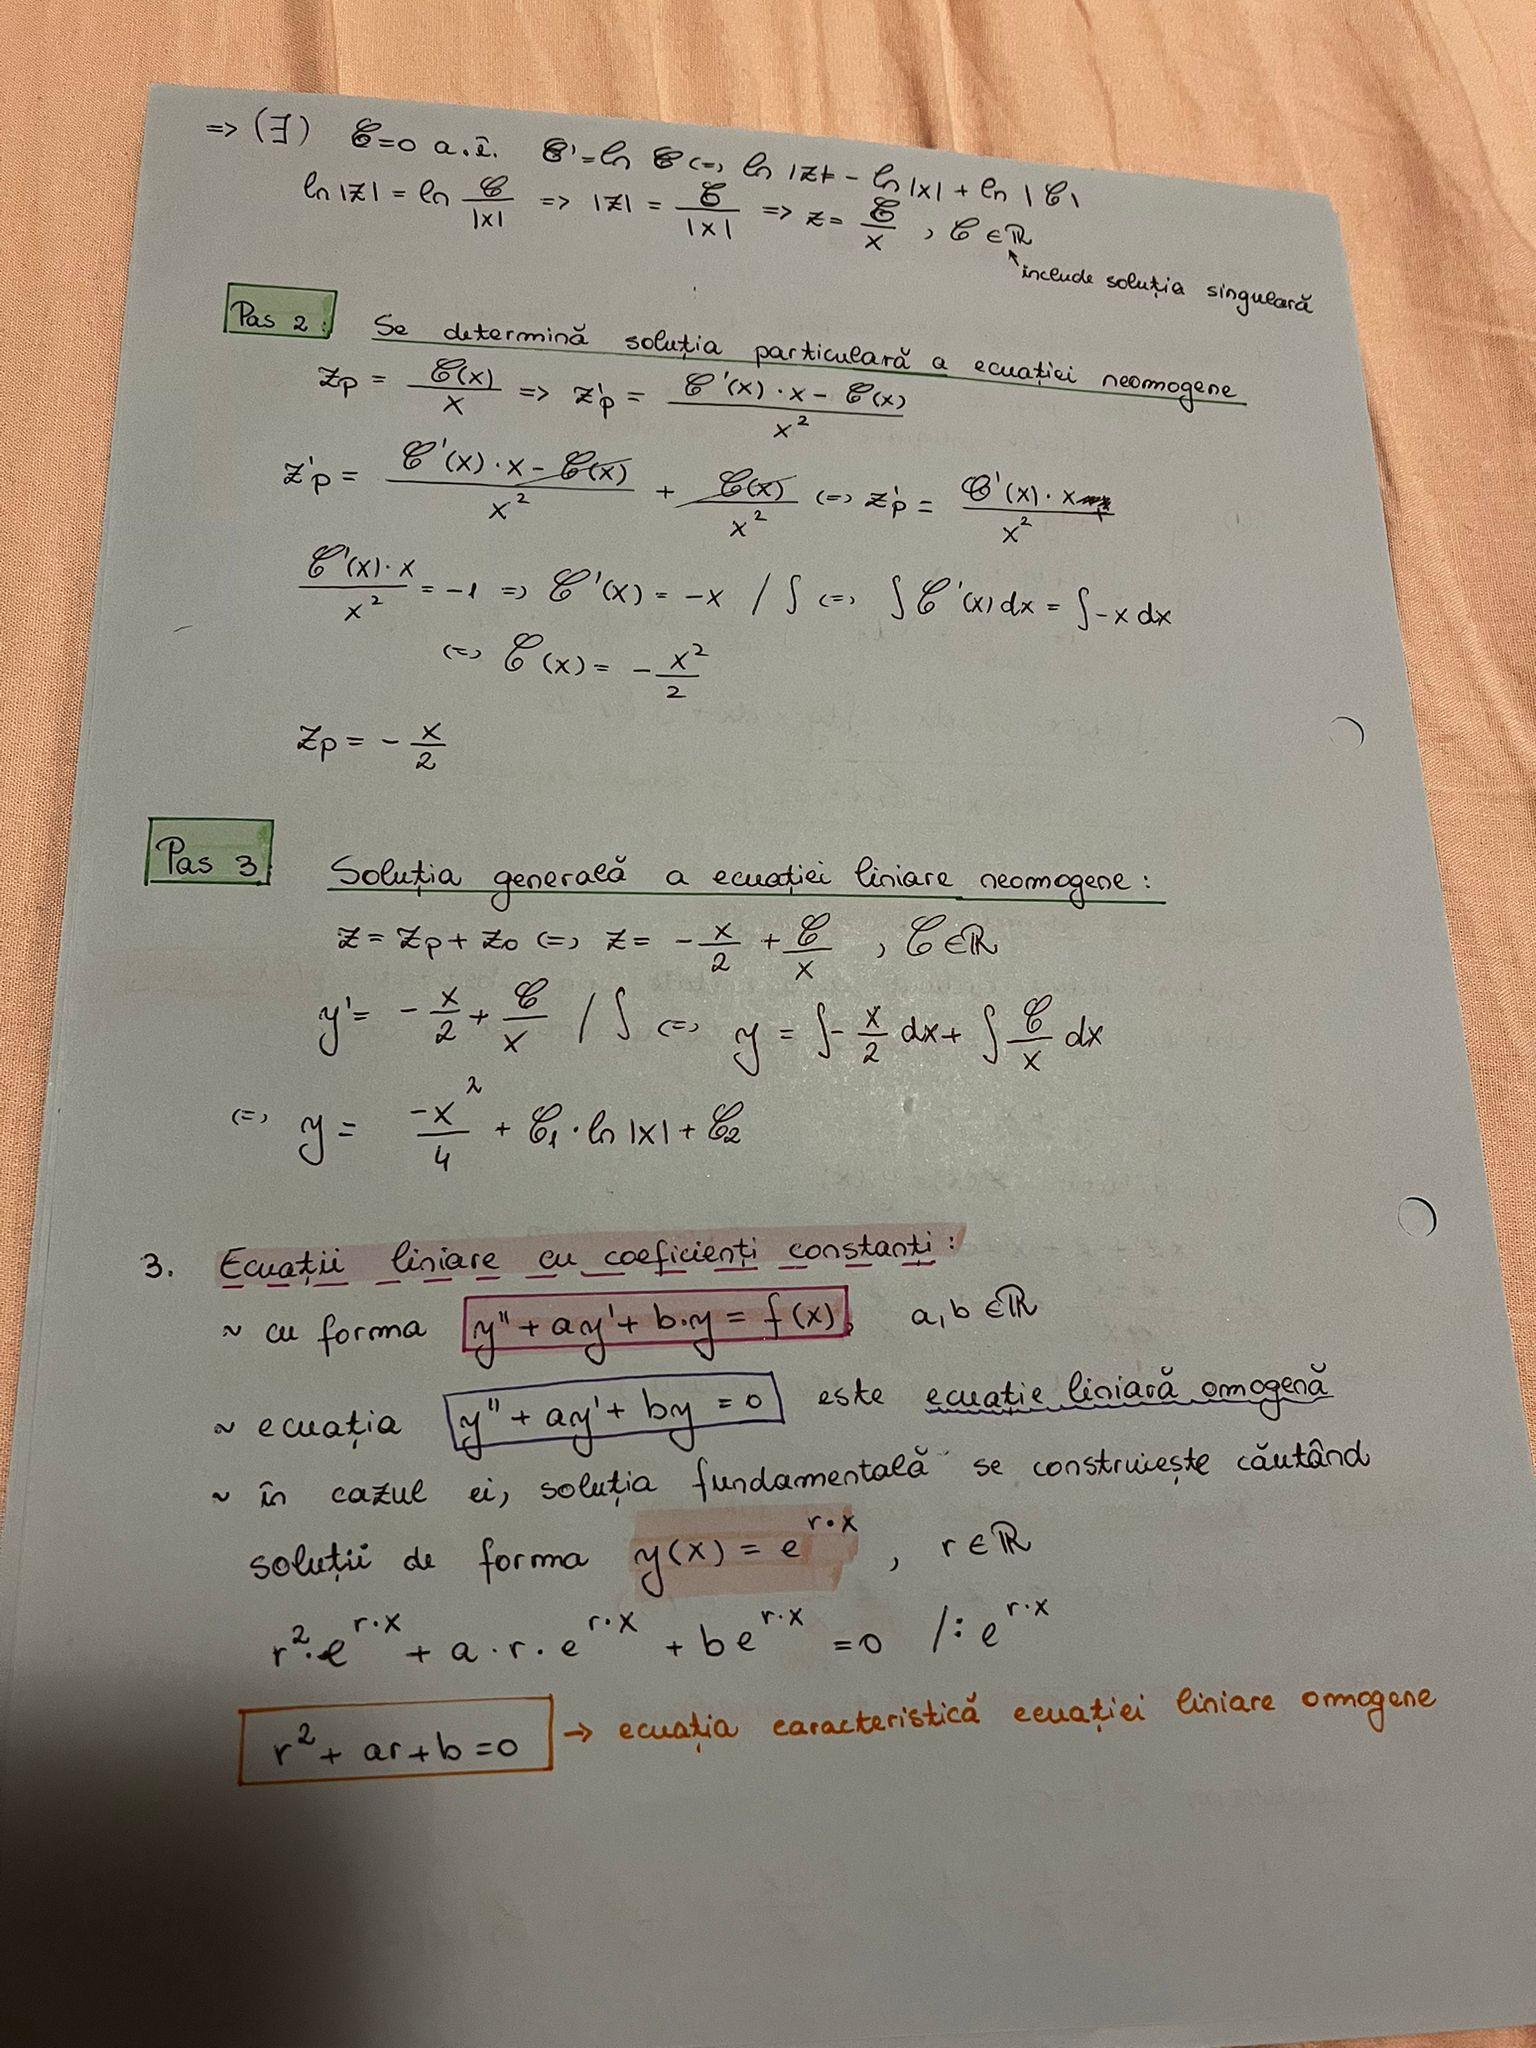 => (∃) C=0 a.î. C'=ln C (=> ln |z| = - ln |x| + ln |C|
ln |z| = ln C/|x| => |z| = C/|x| => z = C/x , C ∈ ℝ
include soluția singulară
Pas 2: Se determină soluția particulară a ecuației neomogene
zp = C(x)/x => z'p = (C'(x)·x - C(x))/x²
z'p = (C'(x)·x - C(x))/x² + C(x)/x² (=> z'p = C'(x)·x/x²
C'(x)·x/x² = -1 => C'(x) = -x /∫ (=> ∫C'(x)dx = ∫-x dx
(=> C(x) = - x²/2
zp = - x/2
Pas 3 Soluția generală a ecuației liniare neomogene :
z = zp + z0 (=> z = - x/2 + C/x , C ∈ ℝ
y' = - x/2 + C/x /∫ (=> y = ∫- x/2 dx + ∫ C/x dx
(=> y = -x²/4 + C1·ln|x| + C2
3. Ecuații liniare cu coeficienți constanți :
~ cu forma y'' + ay' + b·y = f(x), a,b ∈ ℝ
~ ecuația y'' + ay' + by = 0 este ecuație liniară omogenă
~ în cazul ei, soluția fundamentală se construiește căutând
soluții de forma y(x) = e^(r·x) , r ∈ ℝ
r²·e^(r·x) + a·r·e^(r·x) + be^(r·x) = 0 /: e^(r·x)
r² + ar + b = 0 → ecuația caracteristică ecuației liniare omogene